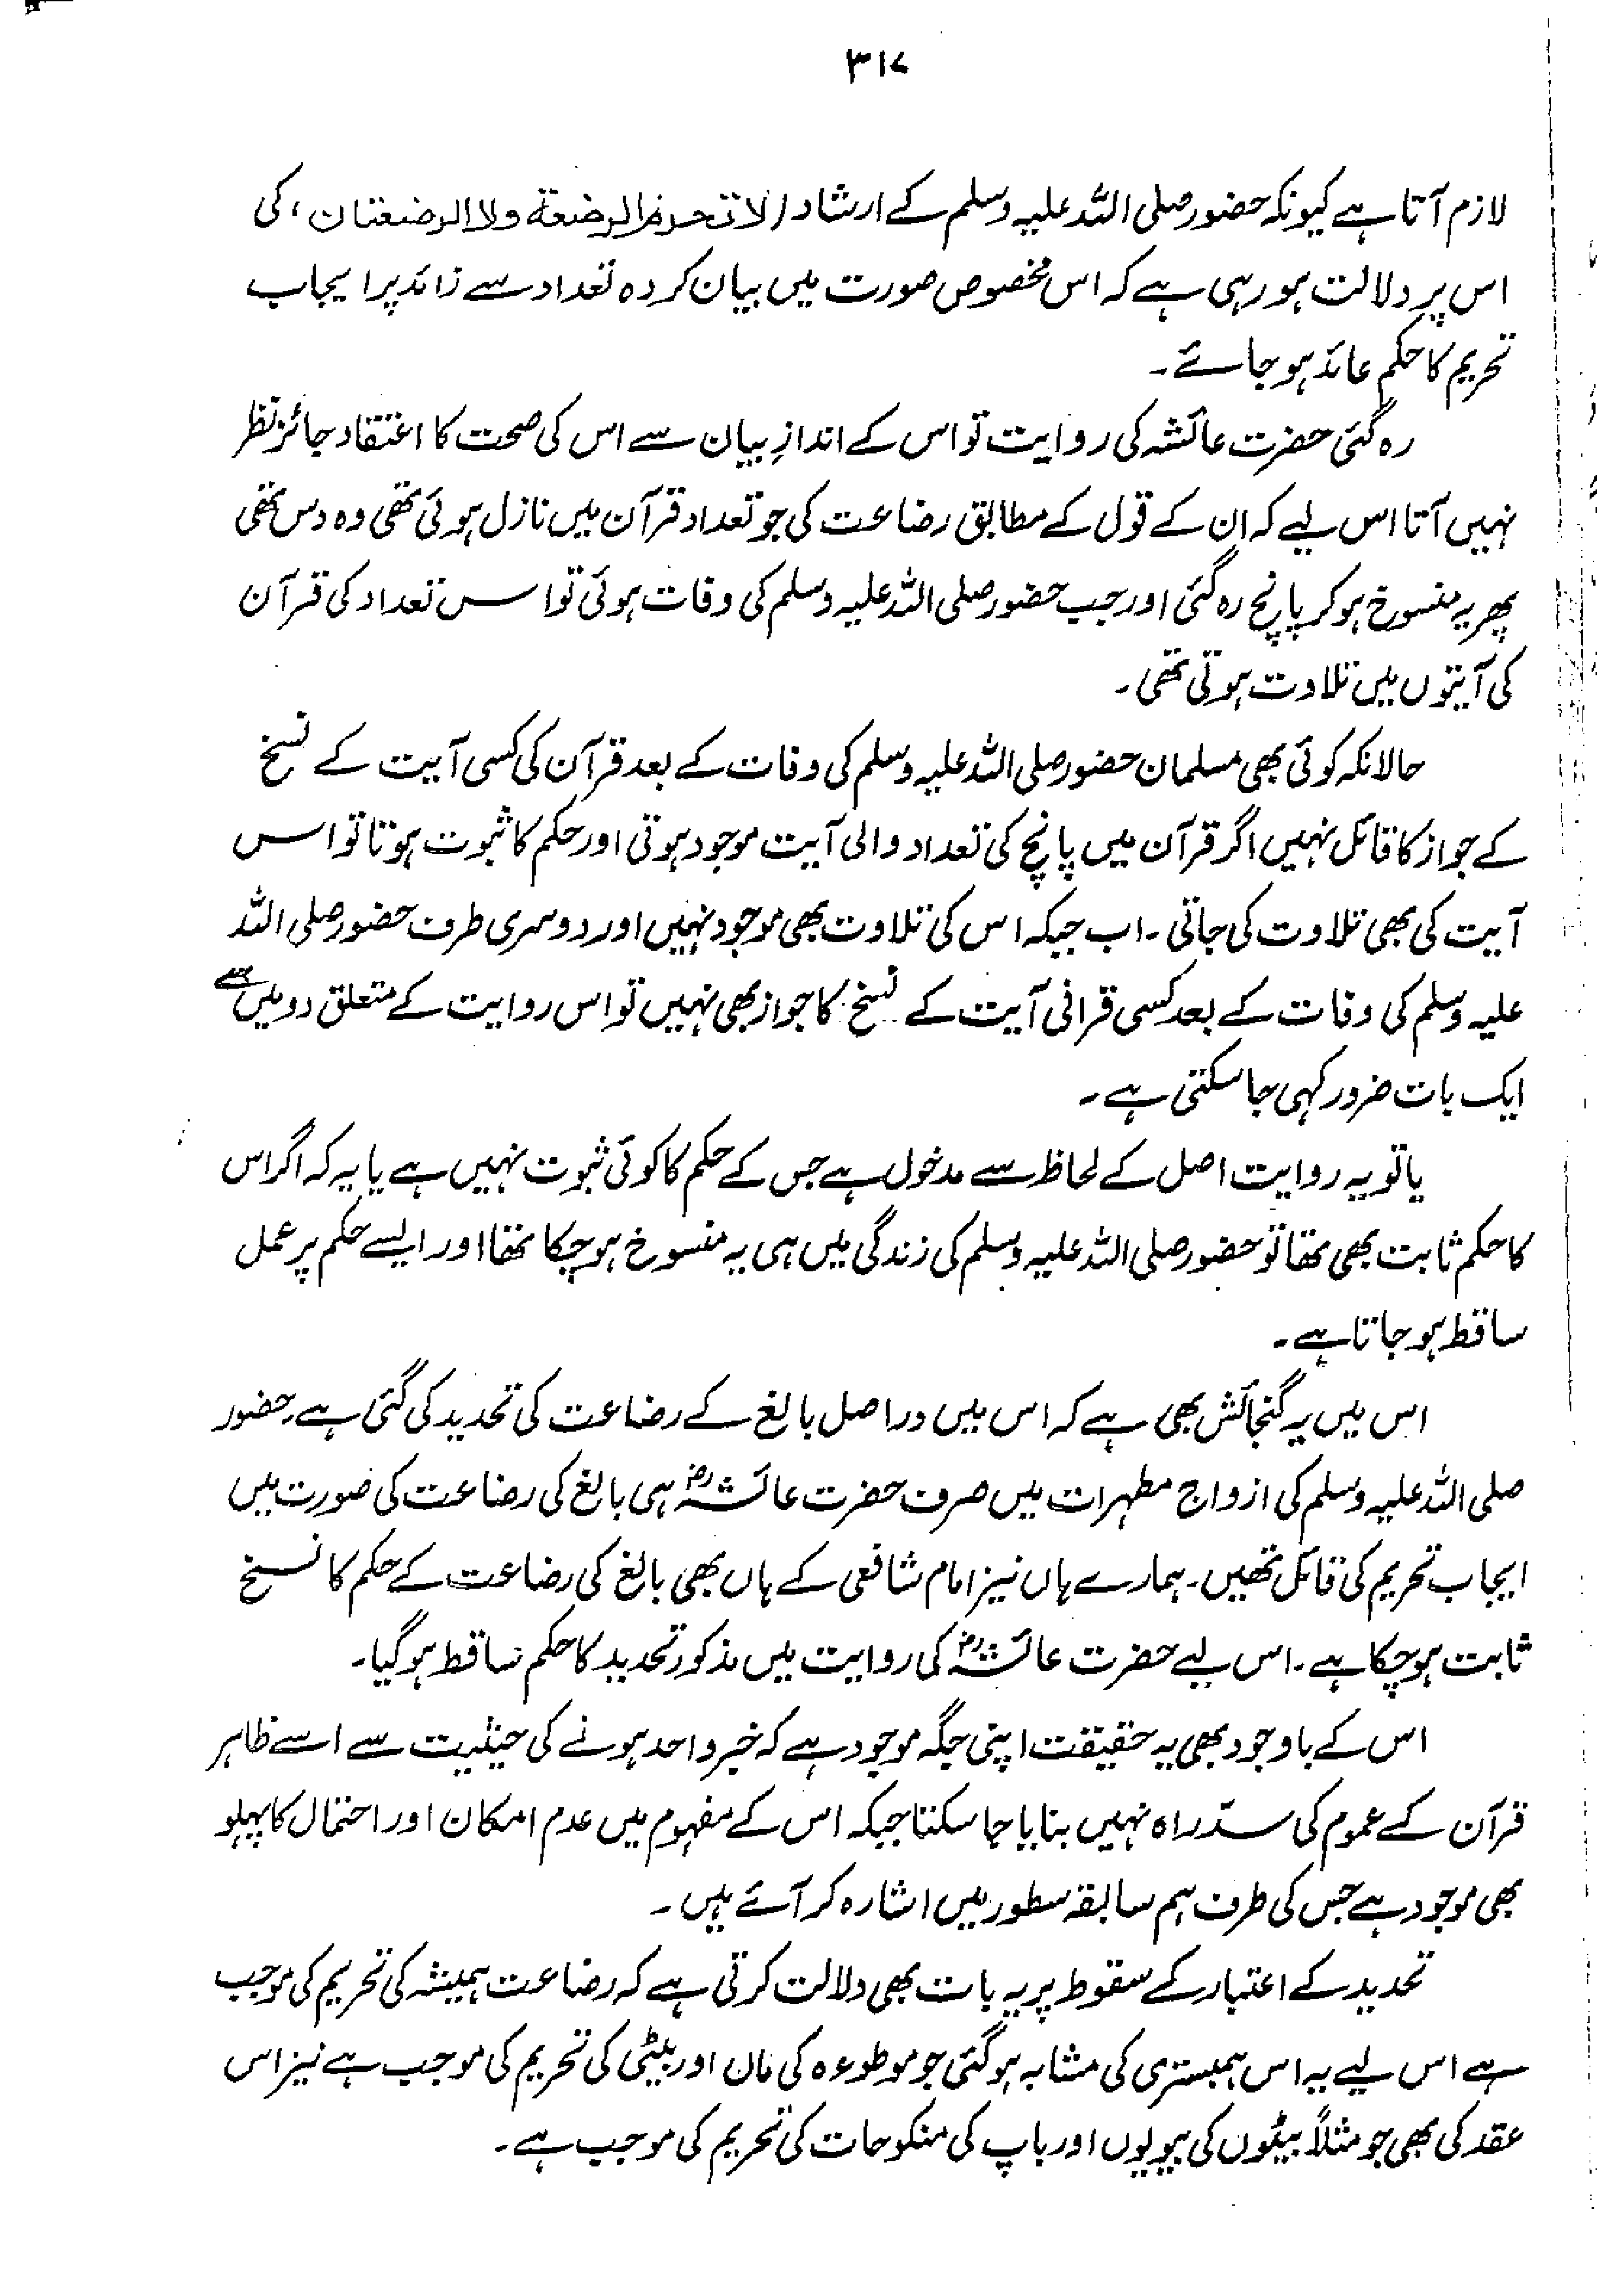 ۳۱۷
لازم آتا ہے کیونکہ حضور صلی اللہ علیہ وسلم کے ارشاد (لا تحرم الرضعة ولا الرضعتان، کی
اس پر دلالت ہو رہی ہے کہ اس مخصوص صورت میں بیان کردہ تعداد سے زائد پر ایجاب
تحریم کا حکم عائد ہو جائے۔
رہ گئی حضرت عائشہ کی روایت تو اس کے اندازِ بیان سے اس کی صحت کا اعتقاد جائز نظر
نہیں آتا اس لیے کہ ان کے قول کے مطابق رضاعت کی جو تعداد قرآن میں نازل ہوئی تھی وہ دس تھی
پھر یہ منسوخ ہو کر پانچ رہ گئی اور جب حضور صلی اللہ علیہ وسلم کی وفات ہوئی تو اس تعداد کی قرآن
کی آیتوں میں تلاوت ہوتی تھی۔
حالانکہ کوئی بھی مسلمان حضور صلی اللہ علیہ وسلم کی وفات کے بعد قرآن کی کسی آیت کے نسخ
کے جواز کا قائل نہیں اگر قرآن میں پانچ کی تعداد والی آیت موجود ہوتی اور حکم کا ثبوت ہوتا تو اس
آیت کی بھی تلاوت کی جاتی۔ اب جبکہ اس کی تلاوت بھی موجود نہیں اور دوسری طرف حضور صلی اللہ
علیہ وسلم کی وفات کے بعد کسی قرانی آیت کے نسخ کا جواز بھی نہیں تو اس روایت کے متعلق دو میں سے
ایک بات ضرور کہی جا سکتی ہے۔
یا تو یہ روایت اصل کے لحاظ سے مدخول ہے جس کے حکم کا کوئی ثبوت نہیں ہے یا یہ کہ اگر اس
کا حکم ثابت بھی تھا تو حضور صلی اللہ علیہ وسلم کی زندگی میں ہی یہ منسوخ ہو چکا تھا اور ایسے حکم پر عمل
ساقط ہو جاتا ہے۔
اس میں یہ گنجائش بھی ہے کہ اس میں دراصل بالغ کے رضاعت کی تحدید کی گئی ہے۔ حضور
صلی اللہ علیہ وسلم کی ازواج مطہرات میں صرف حضرت عائشہؓ ہی بالغ کی رضاعت کی صورت میں
ایجاب تحریم کی قائل تھیں۔ ہمارے ہاں نیز امام شافعی کے ہاں بھی بالغ کی رضاعت کے حکم کا نسخ
ثابت ہو چکا ہے۔ اس لیے حضرت عائشہؓ کی روایت میں مذکور تحدید کا حکم ساقط ہو گیا۔
اس کے باوجود بھی یہ حقیقت اپنی جگہ موجود ہے کہ خبر واحد ہونے کی حیثیت سے اسے ظاہر
قرآن کے عموم کی سدّراہ نہیں بنایا جا سکتا جبکہ اس کے مفہوم میں عدم امکان اور احتمال کا پہلو
بھی موجود ہے جس کی طرف ہم سابقہ سطور میں اشارہ کر آئے ہیں۔
تحدید کے اعتبار کے سقوط پر یہ بات بھی دلالت کرتی ہے کہ رضاعت ہمیشہ کی تحریم کی موجب
ہے اس لیے یہ اس ہمبستری کی مشابہ ہو گئی جو موطوءہ کی ماں اور بیٹی کی تحریم کی موجب ہے نیز اس
عقد کی بھی جو مثلاً بیٹوں کی بیویوں اور باپ کی منکوحات کی تحریم کی موجب ہے۔